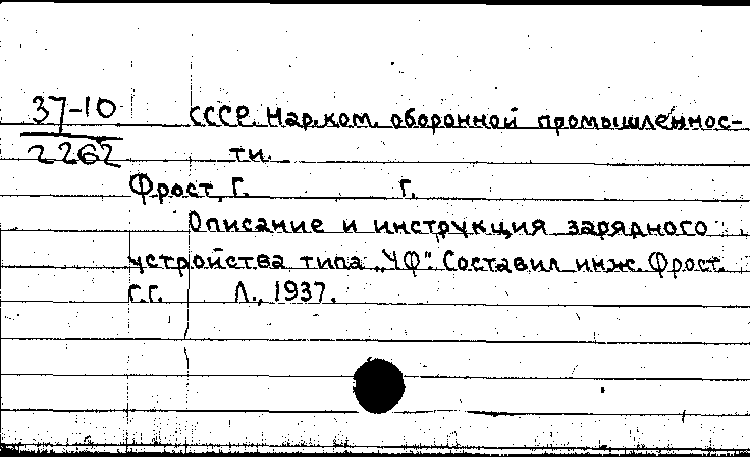 37-10
2262
СССР. Нар.ком. оборонной промышленнос-
ти.
Фрост, Г. Г.
Описание и инструкция зарядного
устройства типа „УФ". Составил инж. Фрост.
Г.Г. Л., 1937.